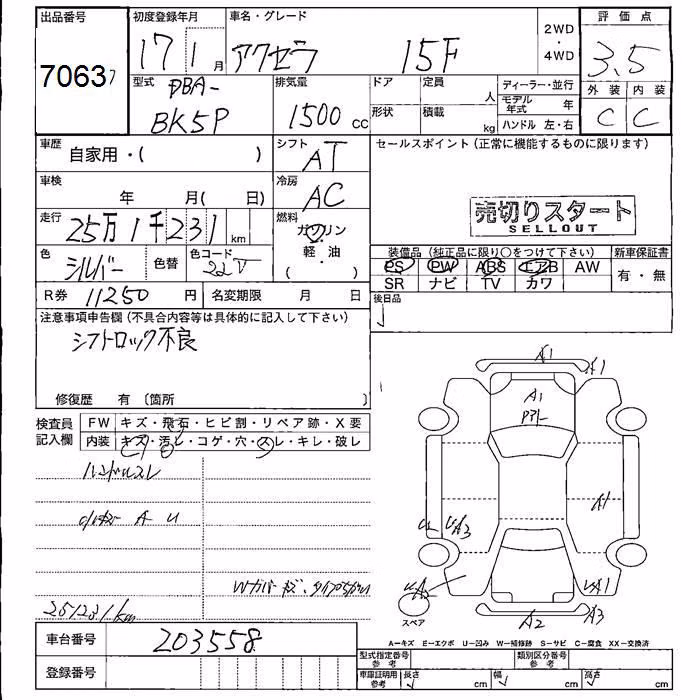 出品番号
70637
初度登録年月
17 1 月
車名・グレード
アクセラ 15F
2WD
・
4WD
評価点
3.5
外装 内装
C C
型式
DBA-
BK5P
排気量
1500 cc
ドア
定員
人
形状
積載
kg
ディーラー・並行
モデル年式 年
ハンドル 左・右
車歴
自家用・( )
シフト
AT
セールスポイント(正常に機能するものに限ります)
売切りスタート
SELLOUT
車検
年 月( 日)
冷房
AC
走行
25万1千231 km
燃料
ガソリン
軽・油
( )
色
シルバー
色替
色コード
22V
R券 11250 円
名変期限 月 日
装備品(純正品に限り○をつけて下さい)
PS PW ABS エアB AW
SR ナビ TV カワ
新車保証書
有・無
後日品
注意事項申告欄(不具合内容等は具体的に記入して下さい)
シフトロック不良
修復歴 有〔箇所 〕
検査員
記入欄
FW キズ・飛石・ヒビ割・リペア跡・X要
内装 キズ・汚レ・コゲ・穴・スレ・キレ・破レ
ハンドルスレ
A U
251231km
A1
A1
A1
A1
A2
A3
スペア
A-キズ E-エクボ U-凹み W-補修跡 S-サビ C-腐食 XX-交換済
車台番号
203558
登録番号
型式指定番号
参考
類別区分番号
参考
車庫証明用
参考
長さ cm
幅 cm
高さ cm